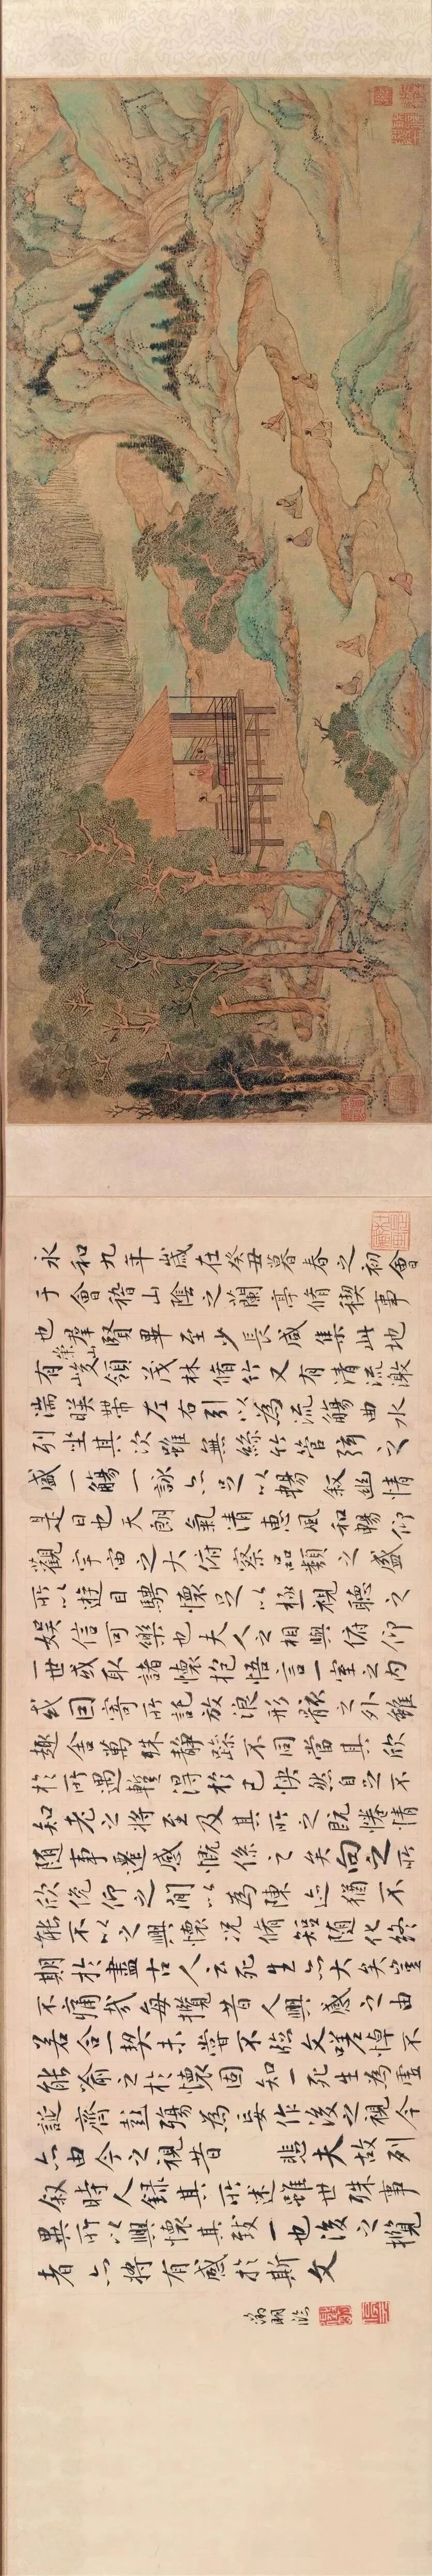 永和九年歲在癸丑暮春之初會
于會稽山陰之蘭亭脩禊事
也群賢畢至少長咸集此地
有崇山峻領茂林脩竹又有清流激
湍暎帶左右引以為流觴曲水
列坐其次雖無絲竹管弦之
盛一觴一詠亦足以暢敘幽情
是日也天朗氣清惠風和暢仰
觀宇宙之大俯察品類之盛
所以遊目騁懷足以極視聽之
娛信可樂也夫人之相與俯仰
一世或取諸懷抱悟言一室之內
或因寄所託放浪形骸之外雖
趣舍萬殊靜躁不同當其欣
於所遇暫得於己怏然自足不
知老之將至及其所之既惓情
隨事遷感慨係之矣向之所
欣俛仰之間以為陳迹猶不
能不以之興懷況脩短隨化終
期於盡古人云死生亦大矣豈
不痛哉每攬昔人興感之由
若合一契未嘗不臨文嗟悼不
能喻之於懷固知一死生為虛
誕齊彭殤為妄作後之視今
亦由今之視昔 悲夫故列
敘時人録其所述雖世殊事
異所以興懷其致一也後之攬
者亦將有感於斯文
徵明臨